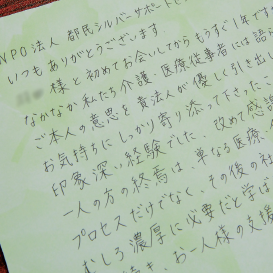 NPO法人 都民シルバーサポートセ
いつもありがとうございます
様と初めてお会いしてからもうすぐ1年です
なかなか私たち介護、医療従事者には語
ご本人の意思を貴法人が優しく引き出
お気持ちにしっかり寄り添って下さったこ
印象深い経験でした。改めて感謝
一人の方の終焉は、単なる医療、
プロセスだけでなく、その後の社
むしろ濃厚に必要だと学ば
お一人様の支援